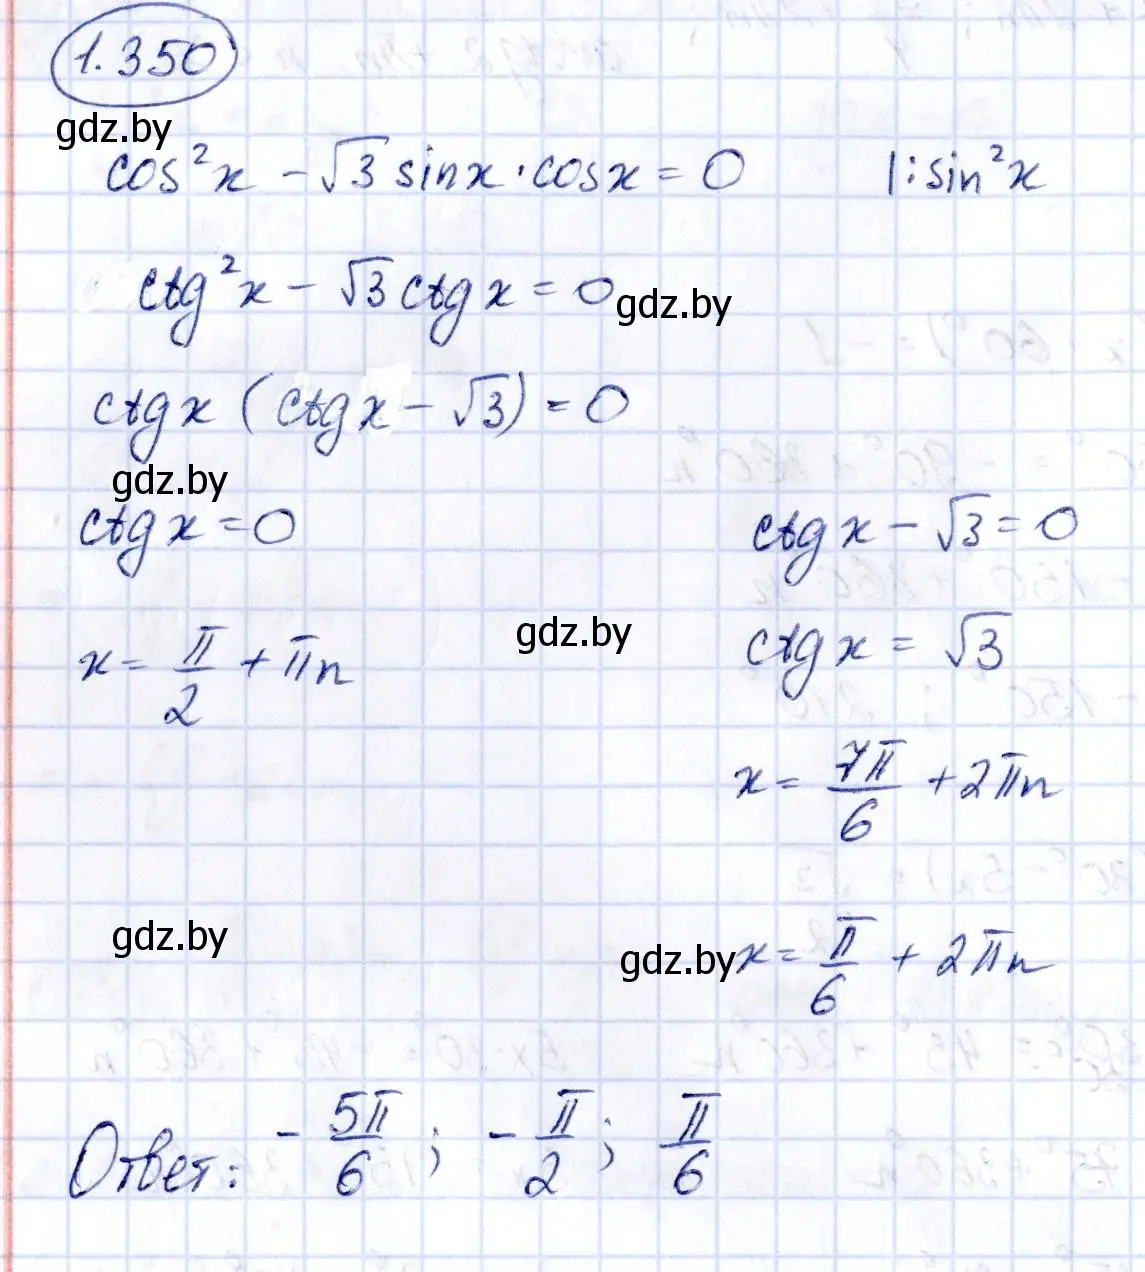 1.350
gdz.by
cos²x - √3 sinx · cosx = 0 |: sin²x
ctg²x - √3 ctgx = 0
gdz.by
ctgx (ctgx - √3) = 0
gdz.by
ctgx = 0 ctgx - √3 = 0
gdz.by
x = π/2 + πn ctgx = √3
x = 7π/6 + 2πn
gdz.by
gdz.by x = π/6 + 2πn
Ответ: - 5π/6; - π/2; π/6